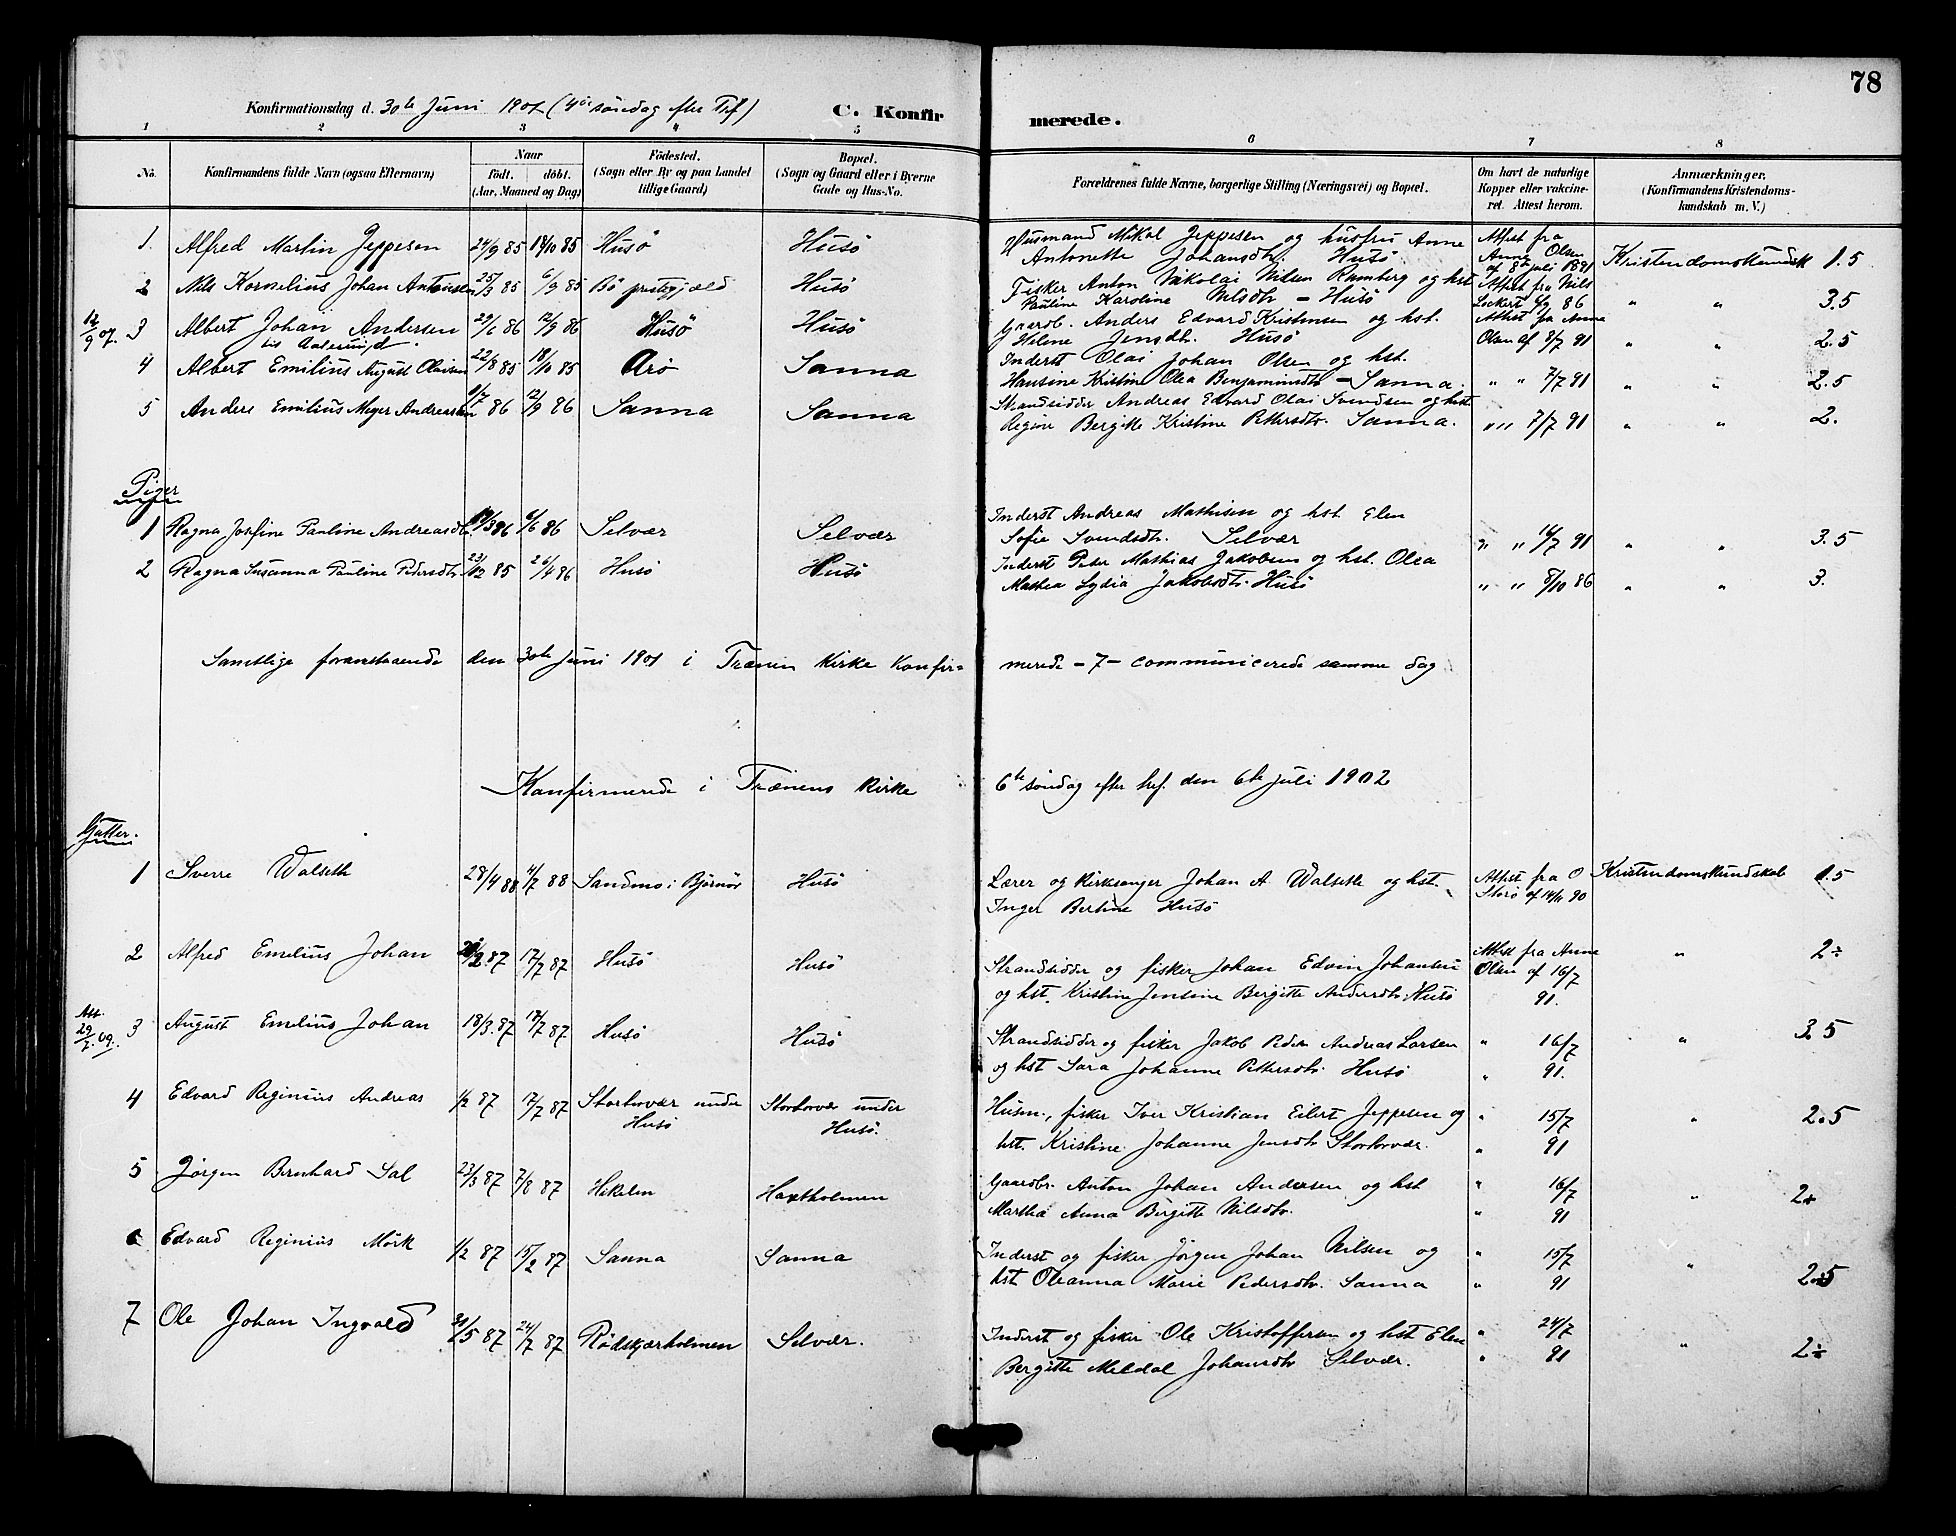 78
Konfirmationsdag d. 30te Juni 1901 (4de søndag efter Tref)
C. Konfirmerede.
1 2 3 4 5 6 7 8
No.
Konfirmandens fulde Navn (ogsaa Efternavn)
Naar
födt. döbt.
(Aar, Maaned og Dag)
Födested.
(Sogn eller By og paa Landet tillige Gaard)
Bopæl.
(Sogn og Gaard eller i Byerne Gade og Hus-No.
Forældrenes fulde Navne, borgerlige Stilling (Næringsvei) og Bopæl.
Om havt de naturlige Kopper eller vakcineret. Attest herom.
Anmærkninger.
(Konfirmandens Kristendomskundskab m. V.)
1. Alfred Martin Jeppesen 24/9 85 18/10 85 Husö Husö Husmand Mikal Jeppesen og husfru Anne Antonette Johansdtr. Husö Attest fra Anne Olsen af 8de juli 1891 Kristendomskundsk 1.5
2 Nils Kornelius Johan Antonsen 25/3 85 6/9 85 Bö prestegjæld Husö Fisker Anton Nikolai Nilsen Ramberg og hst Pauline Karoline Nilsdtr – Husö Attest fra Nils Lockert 86 " " 3.5
12/9 07. 3 Albert Johan Andersen 29/6 86 12/9 86 Husö Husö Gaardb. Anders Edvard Kristensen og hst. Helene Jensdtr. Husö Attest fra Anne Olsen af 8/7 91 " " 2.5
til Aalesund.
4 Albert Emilius August Olaisen 22/8 85 18/10 85 Arö Sanna Inderst Olai Johan Olsen og hst. Hansine Kristine Olea Benjaminsdtr – Sanna. " " 7/7 91 " " 2.5
5 Anders Emilius Meyer Andreassen 86 12/9 86 Sanna Sanna Strandsidder Andreas Edvard Olai Svendsen og hst Regine Bergitte Kristine Pettersdtr. Sanna. " " 7/7 91 " " 2.
Piger
1 Ragna Josefine Pauline Andreasdtr. 86 6/6 86 Selvær Selvær Inderst Andreas Mathisen og hst Elen Sofie Svendsdtr. Selvær " " 16/7 91 " " 3.5
2 Ragna Susanna Pauline Pedersdtr. 23/12 85 26/4 86 Husö Husö Inderst Peder Mathias Jakobsen og hst. Olea Mathea Lydia Jakobsdtr. Husö " " 8/10 86 " " 3.
Samtlige foranstaaende den 30te Juni 1901 i Trænen Kirke Konfir= merede – 7 – communicerede samme dag
Konfirmerede i Trænens Kirke 6te søndag efter tref. den 6te Juli 1902
Gutter.
1 Sverre Walseth 28/4 88 4/7 88 Sandmo i Björnör Husö Lærer og Kirksanger Johan A. Walseth og hst. Inger Bertine Husö Attest fra O Storö af 14/11 90 Kristendomskundskab 1.5
2 Alfred Emelius Johan 2 87 17/7 87 Husö Husö Strandsidder og fisker Johan Edvin Johansen og hst. Kristine Jensine Bergitte Andersdtr. Husö Attest fra Anne Olsen af 16/7 91. " 2÷
Att. 29/7. 09. 3 August Emelius Johan 18/3. 87 17/7 87. Husö Husö Strandsidder og fisker Jakob Peder Andreas Larsen og hst Sara Johanne Pettersdtr. Husö " 16/7 " 91. " 3.5
4 Edvard Reginius Andreas 1/2 87 17/7 87 Stortorvær under Husö Stortorvær under Husö. Husm., fisker Iver Kristian Eilert Jeppesen og hst. Kristine Johanne Jensdtr Stortorvær. " 15/7 " 91 " 2.5
5 Jørgen Bernhard Sal 23/3 87 7/8 87 Hikelen Haxtholmen Gaardbr. Anton Johan Andersen og hst Martha Anna Birgitte Nilsdtr. " 16/7 " 91 " 2+
6 Edvard Reginius Mörk 1/2 87 15/2 87 Sanna Sanna Inderst og fisker Jörgen Johan Nilsen og hst Oleanna Marie Pedersdtr. Sanna " 15/7 " 91 " 2.5
7 Ole Johan Ingvald 30/5 87 24/7 87 Rödskjærholmen Selvær. Inderst og fisker Ole Kristoffersen og hst Elen Bergitte Meldal Johansdtr Selvær. " 24/7 " 91 " 2÷